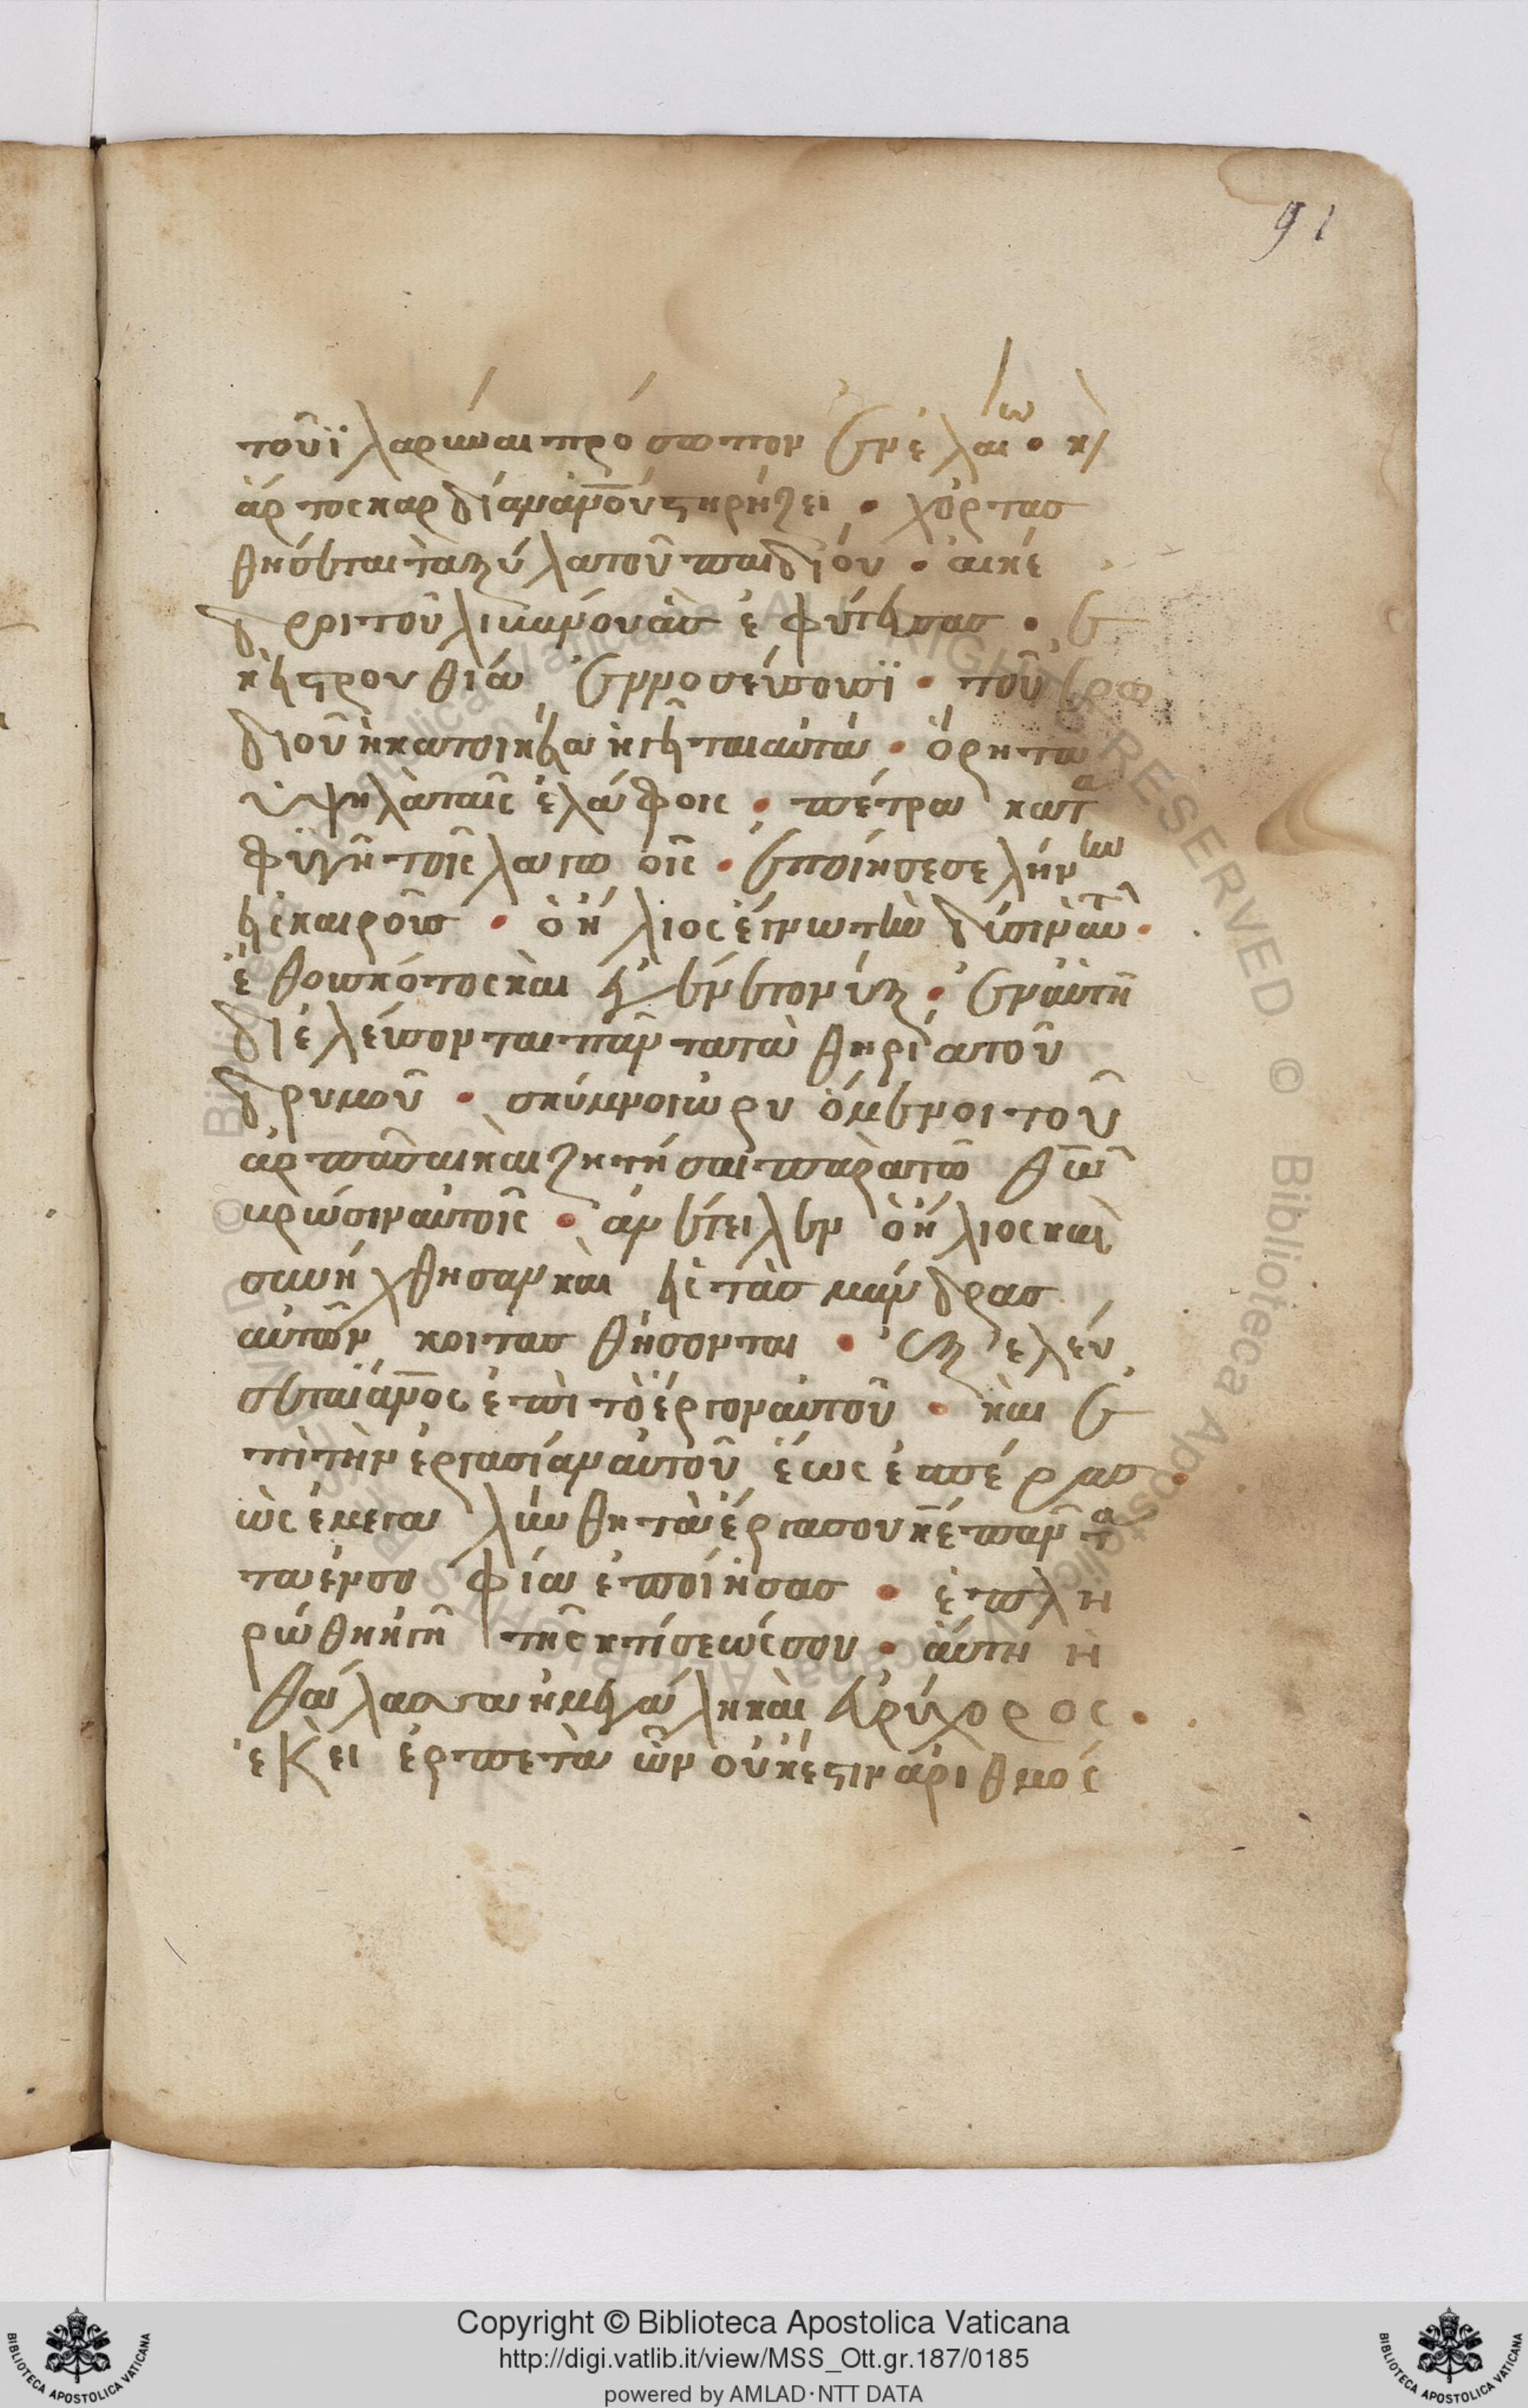 91
τοῦ ἱλαρύναι πρόσωπον ἐν ἐλαίω · κ(αὶ)
ἄρτος καρδίαν ἀν̅ου στηρίζει · χορτασ
θήσεται τὰ ξύλα τοῦ παιδίου · αἱ κέ
δροι τοῦ λιβάνου ἃς ἐφύτευσας · ἐ
κεῖ στρουθία ἐννοσεύσουσϊ · τοῦ ἐρω
διοῦ ἡ κατοικία ἡγεῖται αὐτῶν · ὄρη τὰ
ὑψηλὰ ταῖς ἐλάφοις · πέτρα κατα
φυγὴ τοῖς λαγωοῖς · ἐποίησε σελήνην
εἰς καιροῦς · ὁ ἥλιος ἔγνω τὴν δύσιν αὐτοῦ ·
ἔθου σκότος καὶ ἐγένετο νύξ · ἐν αὐτῆ
διελεύσονται πάντα τὰ θηρία τοῦ
δρυμοῦ · σκύμνοι ὠρυόμενοι τοῦ
ἁρπάσαι καὶ ζητῆσαι παρὰ τῶ θ̅ω̅
βρῶσιν αὐτοῖς · ἀνέτειλεν ὁ ἥλιος καὶ
συνήχθησαν καὶ εἰς τὰς μάνδρας
αὐτῶν κοιτασθήσονται · ἐξελεύ
σεται ἄν̅ος ἐπὶ τὸ ἔργον αὐτοῦ · καὶ ἐ
πὶ τὴν ἐργασίαν αὐτοῦ ἕως ἑσπέρας ·
ὡς ἐμεγαλύνθη τὰ ἔργα σου κ̅ε πάντα
τὰ ἐν σοφία ἐποίησας · ἐπλη
ρώθη ἡ γῆ τῆς κτίσεώς σου · αὕτη ἡ
θάλασσα ἡ μεγάλη καὶ εὐρύχορος ·
ἐκεῖ ἑρπετὰ ὧν οὐκ ἔστιν ἀριθμός
© Biblioteca Apostolica Vaticana ALL RIGHTS RESERVED
Copyright © Biblioteca Apostolica Vaticana
http://digi.vatlib.it/view/MSS_Ott.gr.187/0185
powered by AMLAD·NTT DATA
BIBLIOTECA APOSTOLICA VATICANA
BIBLIOTECA APOSTOLICA VATICANA